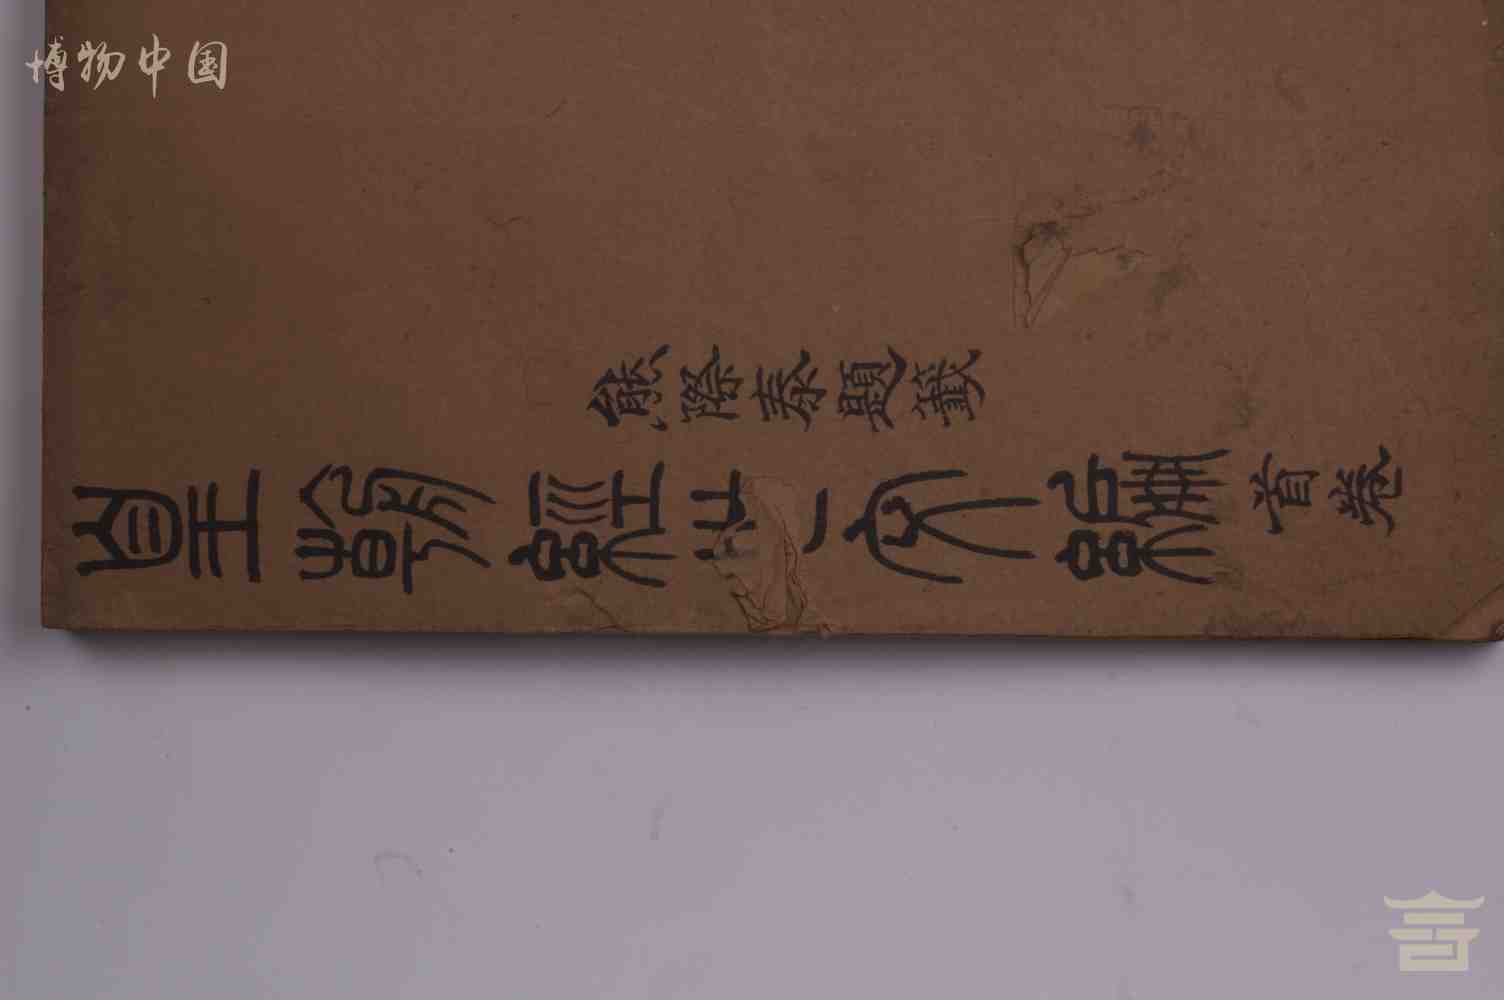 博物中国
皇朝經世文編首卷
熊際泰題籤